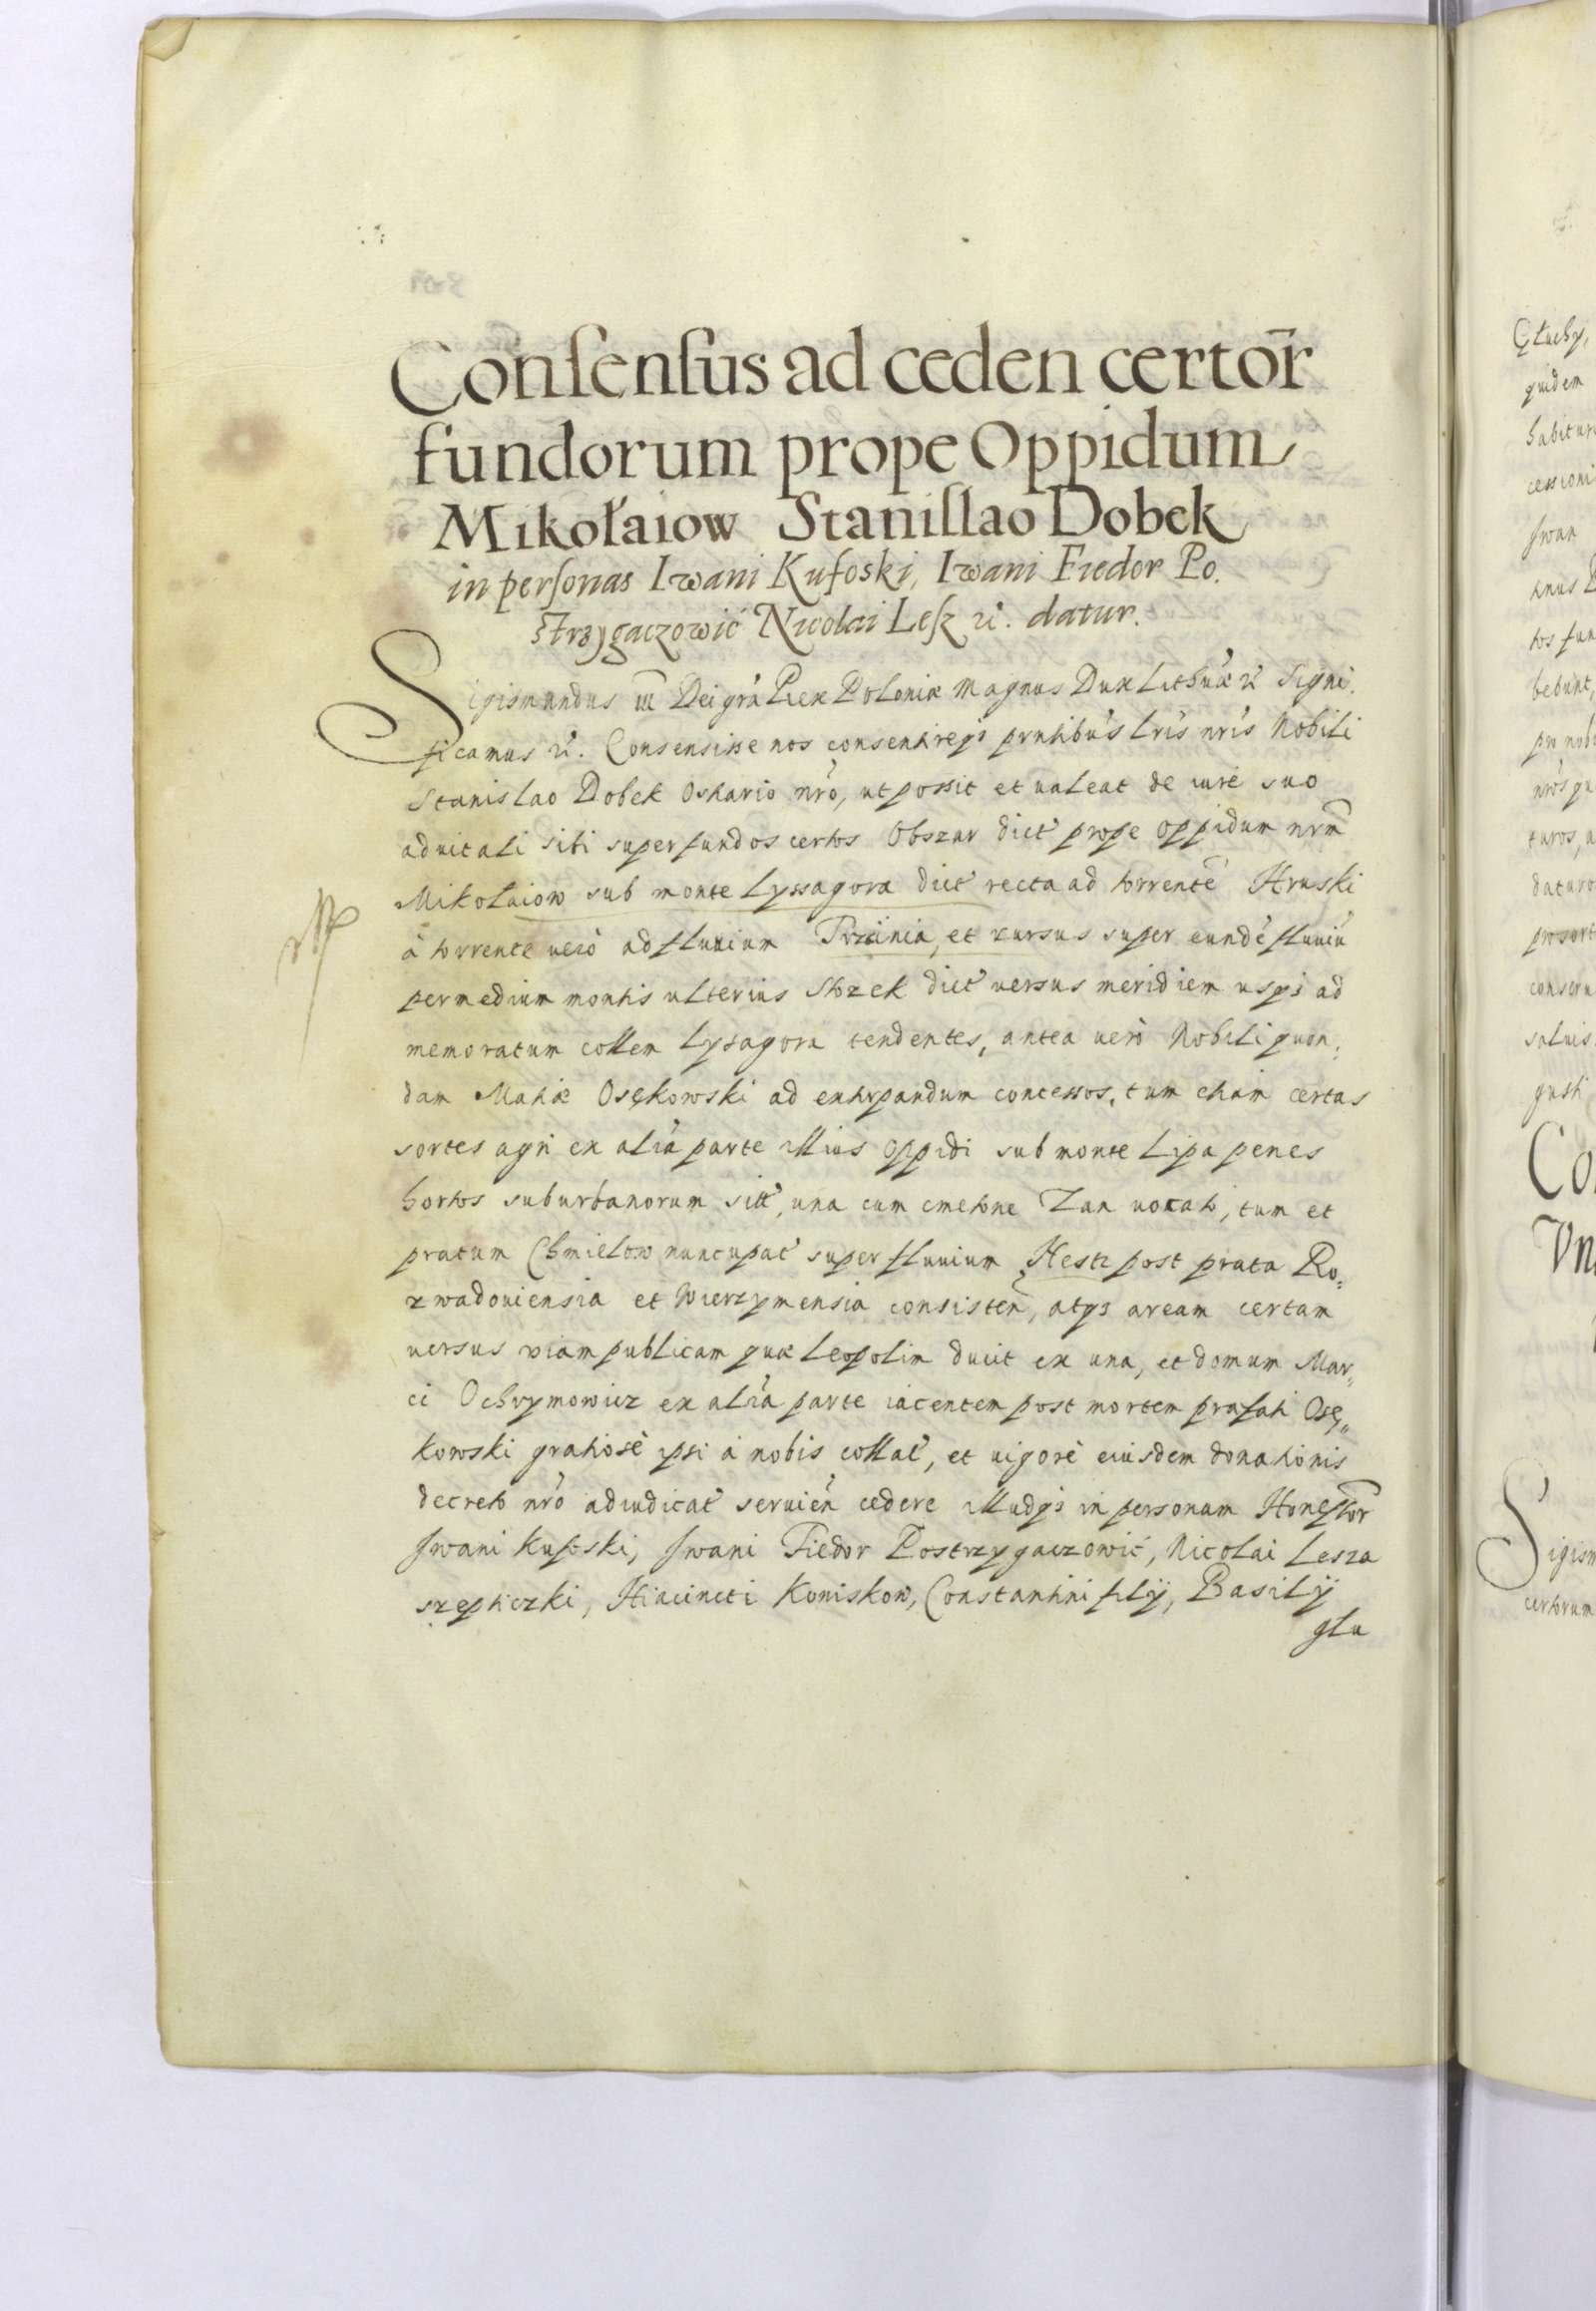 Consensus ad ceden certor̄
fundorum prope Oppidum
Mikołaiow Stanislao Dobek
in personas Iwani Kufoski, Iwani Fiedor Po.
strzygaczowić Nicolai Lesz &. datur.
Sigismundus III Dei gra Rex Poloniæ Magnus Dux Lithuaæ & Signi.
ficamus &. Consensisse nos consentireq; pntibus Lris nris Nobili
Stanislao Dobek Ostiario nro, ut possit et ualeat de iure suo
aduitali sibi super fundos certos Obszar dict prope Oppidum nrm
Mikołaiow sub monte Lyssagora dict recta ad torrentē Hruski
à torrente uerò ad fluuium et rursus super eundē fluuiū
per medium montis ulterius Stozek dict uersus meridiem usq; ad
memoratum collem Lysagora tendentes, antea uerò Nobili quon.
dam Matiæ Osękowski ad extirpandum concessos, tum etiam certas
sortes agri ex alia parte illius Oppidi sub monte Lipa penes
hortos suburbanorum sitt, una cum cmetone Zan uocato, tum et
pratum Chmielow nuncupat super fluuium post prata Ro:
zwadouiensia et Wierzymensia consisten, atq3 aream certam
uersus viam publicam quæ Leopolim ducit ex una, et domum Mar„
ci Ochrymowicz ex alia parte iacentem post mortem præfati Osę„
kowski gratiosè ipsi à nobis collat, et uigore eiusdem donationis
decreto nro adiudicat seruien cedere illudq; in personam Honestor
Iwani Kufoski, Iwani Fiedor Postrzygaczowić, Nicolai Lesza
szepticzki, Hiacincti Koniskow, Constantini filij, Basilij
glu
Głuchy,
quidem
cessioni
Iwan
bebunt,
turos, a
Co
Vn
Sigism
certorum